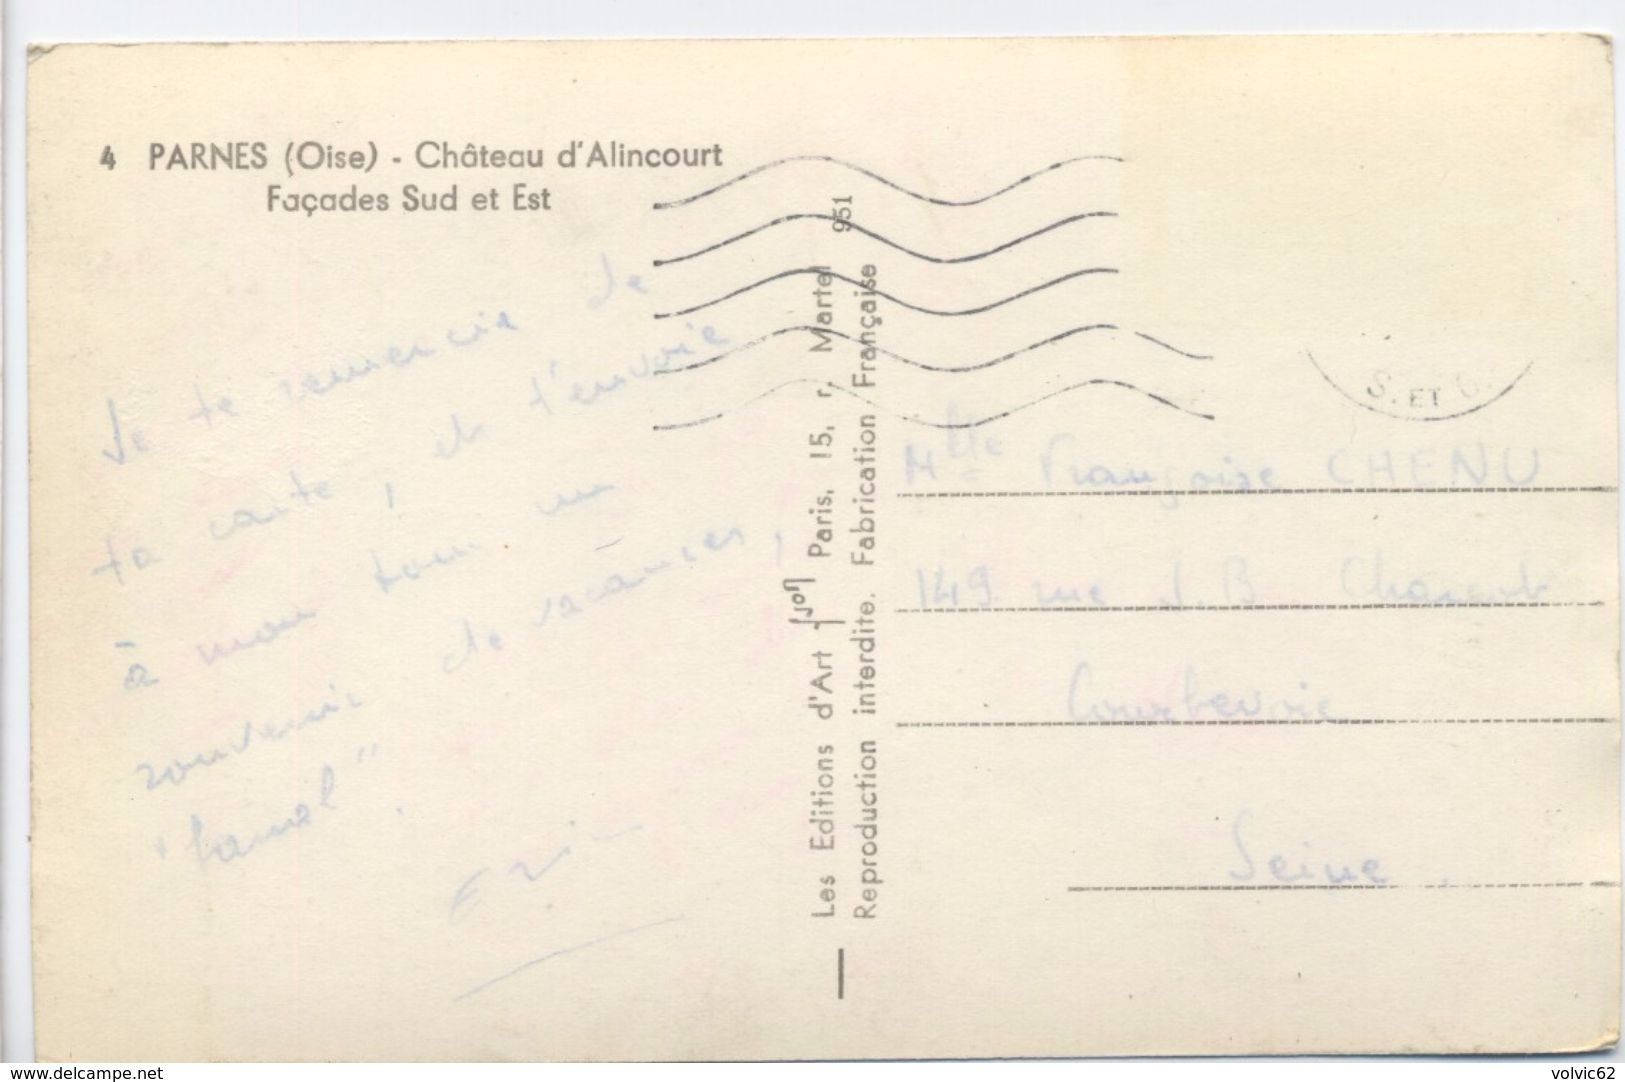 4 PARNES (Oise) - Château d'Alincourt
Façades Sud et Est
Je te remercie de
ta carte, et t'envoie
à mon tour un
souvenir de vacances,
"Jamel".
Les Editions d'Art Yvon Paris, 15, r. Martel 951
Reproduction interdite. Fabrication Française
S. ET O.
Mlle Françoise CHENU
149 rue J.B Charcot
Courbevoie
Seine.
www.delcampe.net
volvic62